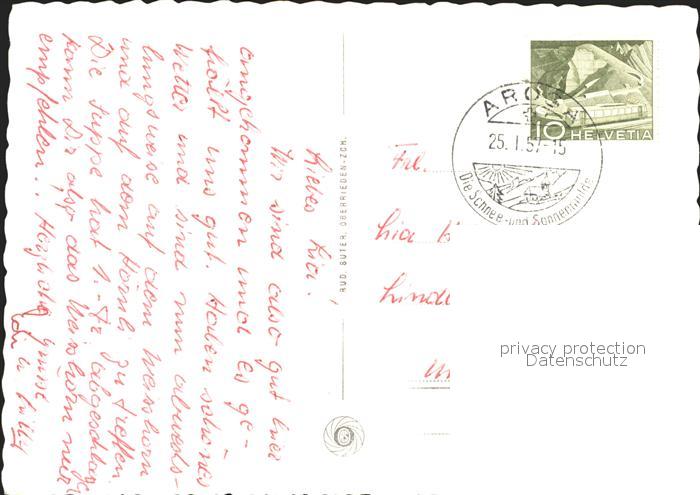 Liebes Lisi!
Wir sind also gut hier
angekommen und es ge-
fällt uns gut. Haben schönes
Wetter und sind nun abwechs-
lungsweise auf dem Weisshorn
und auf dem Hörnli zu treffen.
Die Suppe hat 1.- Fr abgeschlagen
kann Dir also das Weisshorn nur
empfehlen.. Herzliche Grüsse
RUD. SUTER, OBERRIEDEN-ZCH.
AROSA
25. I. 57-15
Die Schnee- und Sonnenmulde
10 HELVETIA
Frl.
Lisa
Linde
privacy protection
Datenschutz